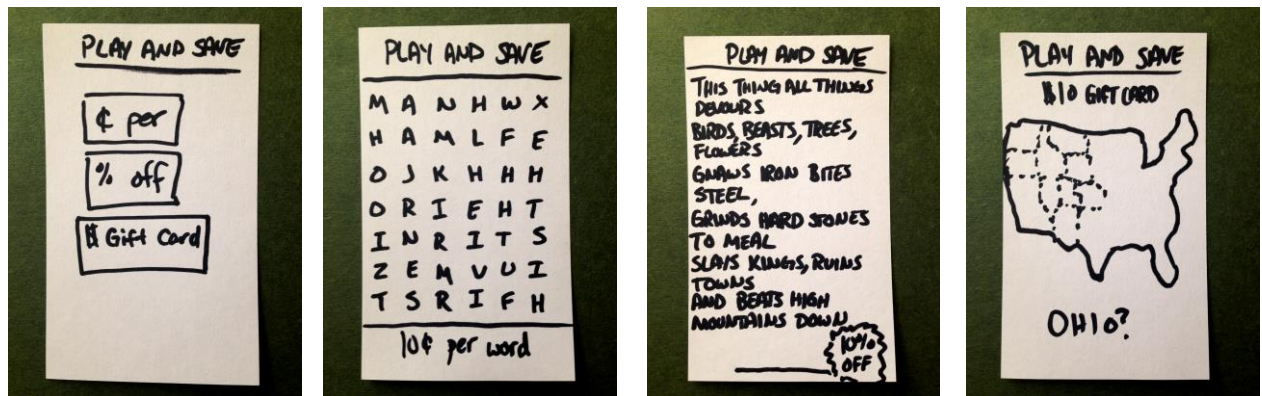 PLAY AND SAVE
¢ per
% off
$ Gift Card
PLAY AND SAVE
M A N H W X
H A M L F E
O J K H H H
O R I E H T
I N R I T S
Z E M V U I
T S R I F H
10¢ per word
PLAY AND SAVE
THIS THING ALL THINGS
DEVOURS
BIRDS, BEASTS, TREES,
FLOWERS
GNAWS IRON BITES
STEEL,
GRINDS HARD STONES
TO MEAL
SLAYS KINGS, RUINS
TOWNS
AND BEATS HIGH
MOUNTAINS DOWN
10%
OFF
PLAY AND SAVE
$10 GIFT CARD
OHIO?